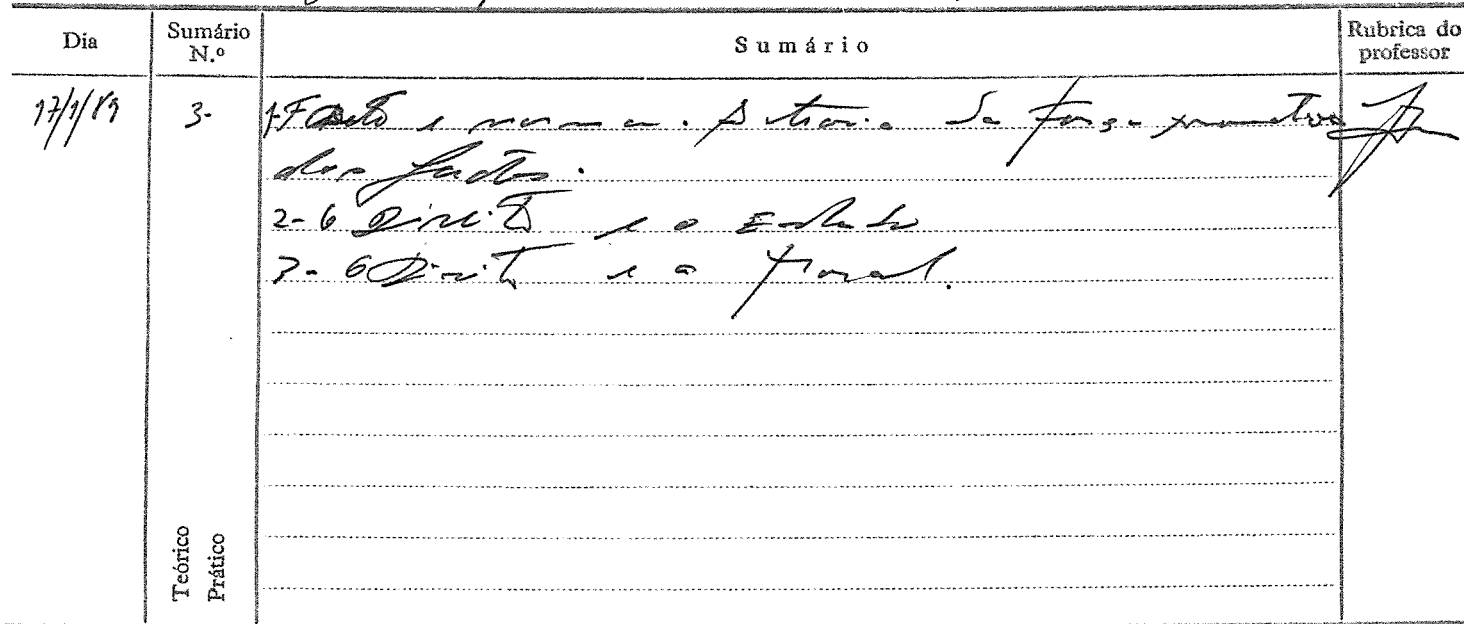 Dia
Sumário N.º
Sumário
Rubrica do professor
17/1/89
3-
1-Facto e norma. A teoria da força normativa
dos factos.
2- O Direito e o Estado
3- O Direito e a Moral.
Teórico
Prático